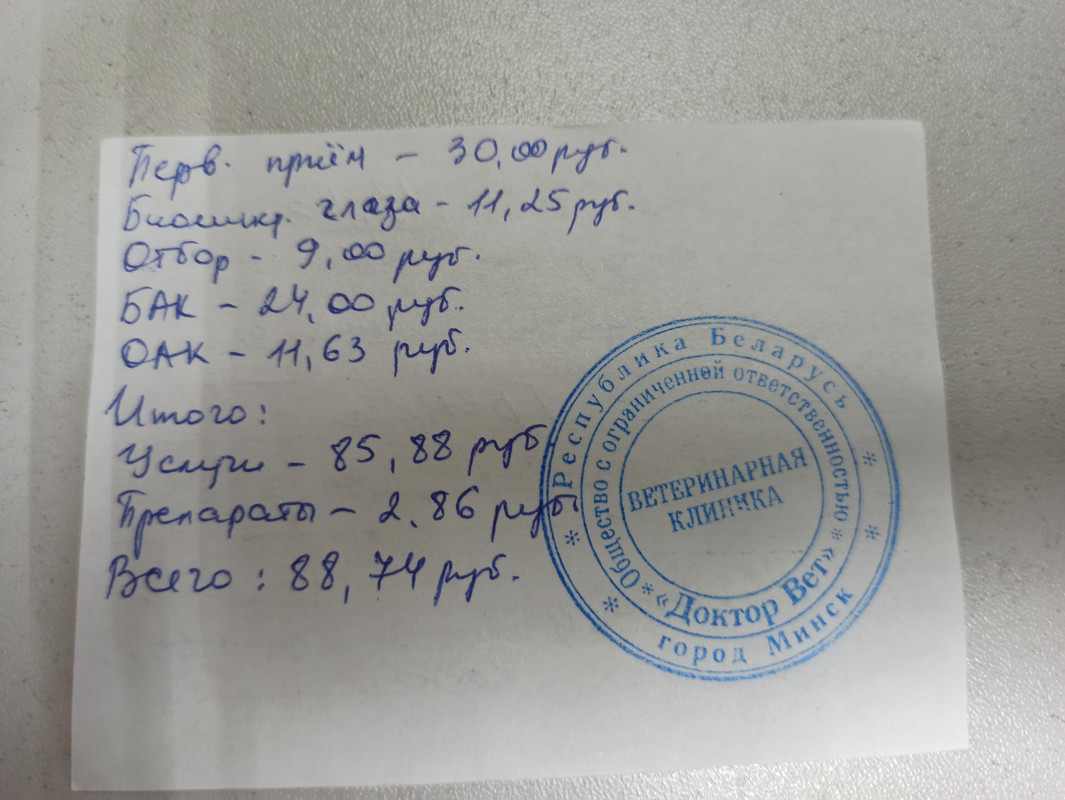 Перв. приём - 30,00 руб.
Биомикр. глаза - 11,25 руб.
Отбор - 9,00 руб.
БАК - 24,00 руб.
ОАК - 11,63 руб.
Итого:
Услуги - 85,88 руб.
Препараты - 2,86 руб.
Всего: 88,74 руб.
* Республика Беларусь *
* город Минск *
Общество с ограниченной ответственностью *
* «Доктор Вет»
ВЕТЕРИНАРНАЯ
КЛИНИКА